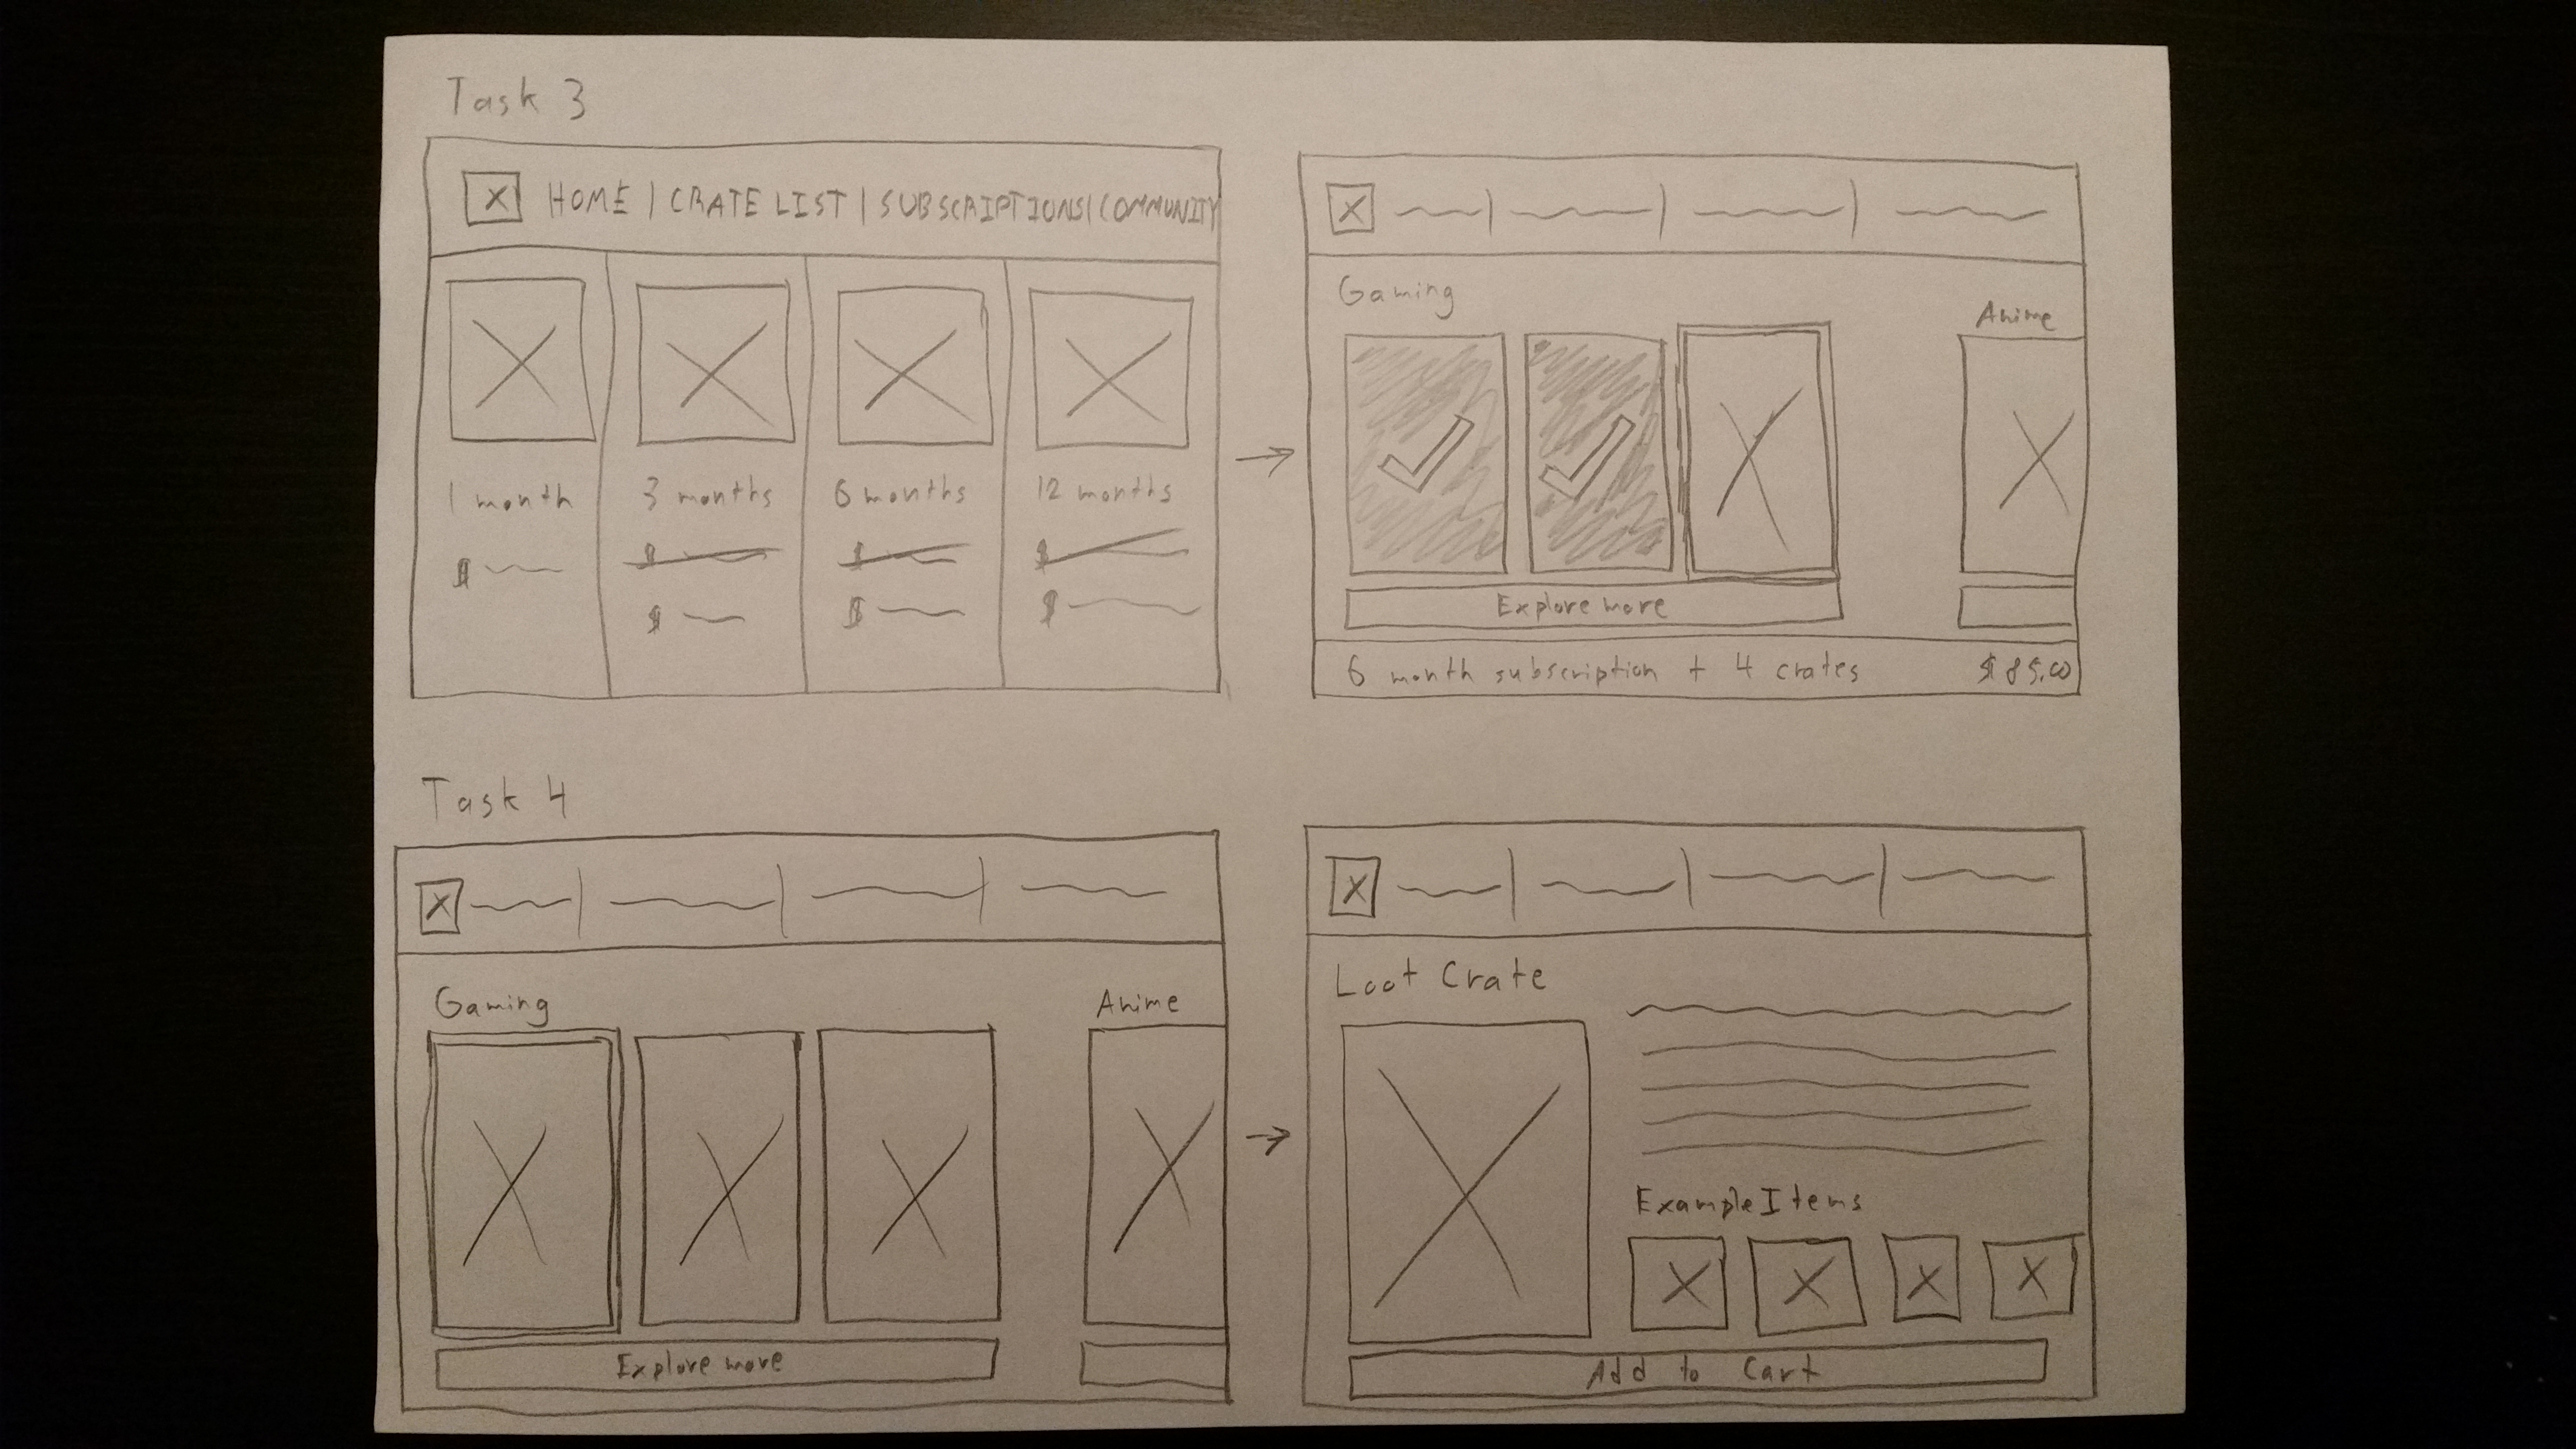 Task 3
HOME | CRATE LIST | SUBSCRIPTIONS | COMMUNITY
1 month
3 months
6 months
12 months
$
$
$
$
$
$
$
Gaming
Anime
Explore more
6 month subscription + 4 crates
$85.00
Task 4
Gaming
Anime
Explore more
Loot Crate
Example Items
Add to Cart